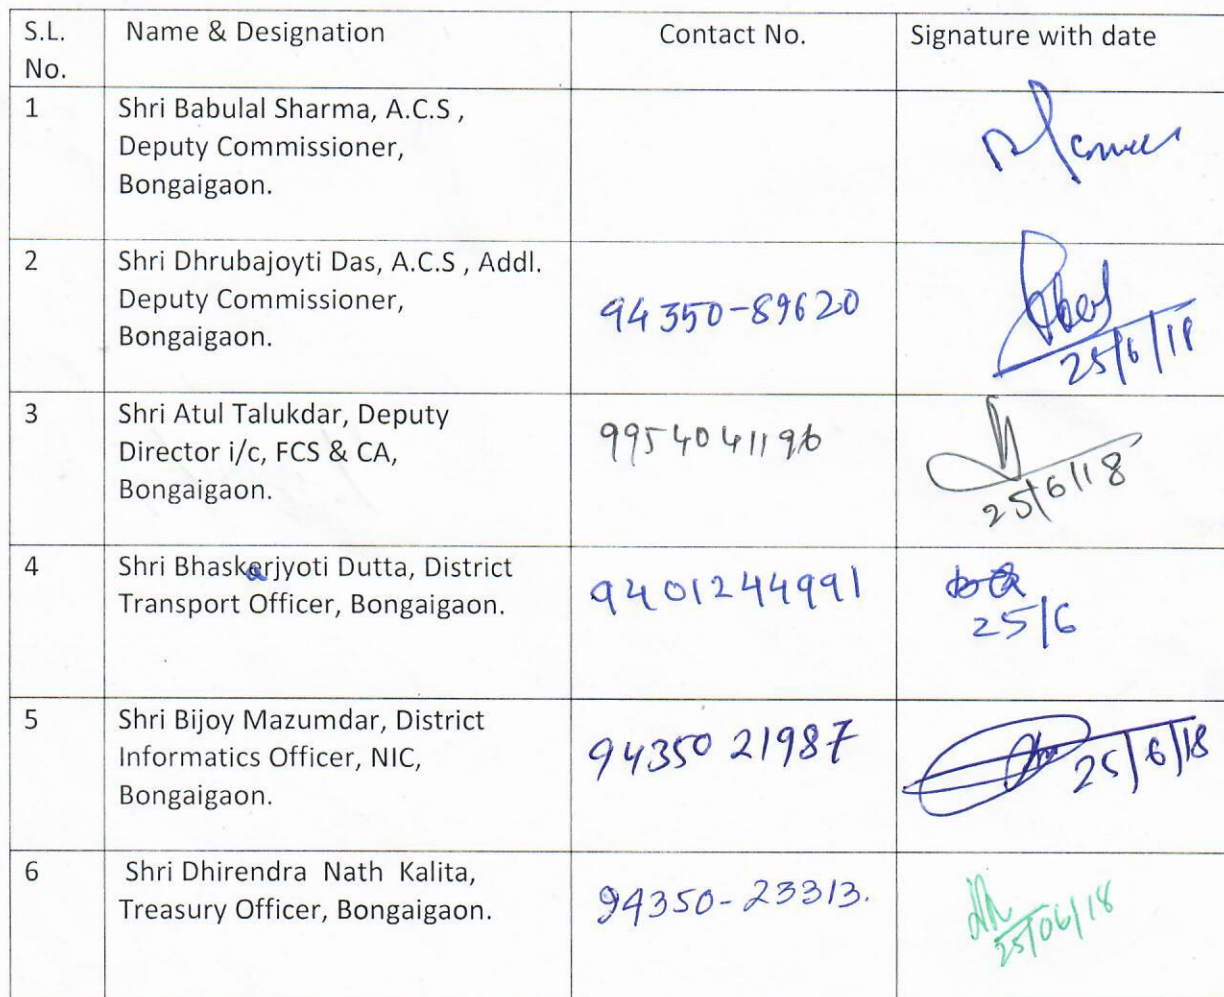 S.L. No. Name & Designation Contact No. Signature with date
1 Shri Babulal Sharma, A.C.S ,
Deputy Commissioner,
Bongaigaon.
2 Shri Dhrubajoyti Das, A.C.S , Addl.
Deputy Commissioner,
Bongaigaon.
94350-89620
25/6/18
3 Shri Atul Talukdar, Deputy
Director i/c, FCS & CA,
Bongaigaon.
9954041196
25/6/18
4 Shri Bhaskarjyoti Dutta, District
Transport Officer, Bongaigaon.
9401244991
25/6
5 Shri Bijoy Mazumdar, District
Informatics Officer, NIC,
Bongaigaon.
94350 21987
25/6/18
6 Shri Dhirendra Nath Kalita,
Treasury Officer, Bongaigaon.
94350-23313.
25/06/18